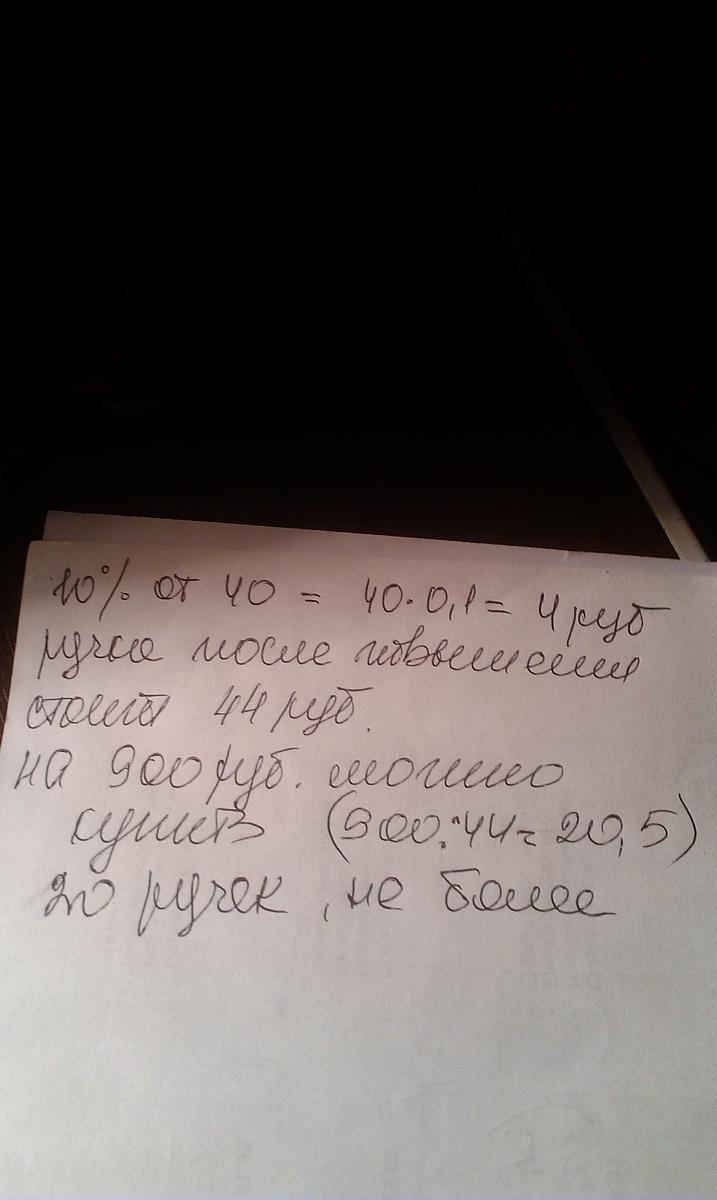 10% от 40 = 40·0,1 = 4 руб
ручка после повышения
стоит 44 руб.
на 900 руб. можно
купить (900:44= 20,5)
20 ручек, не более